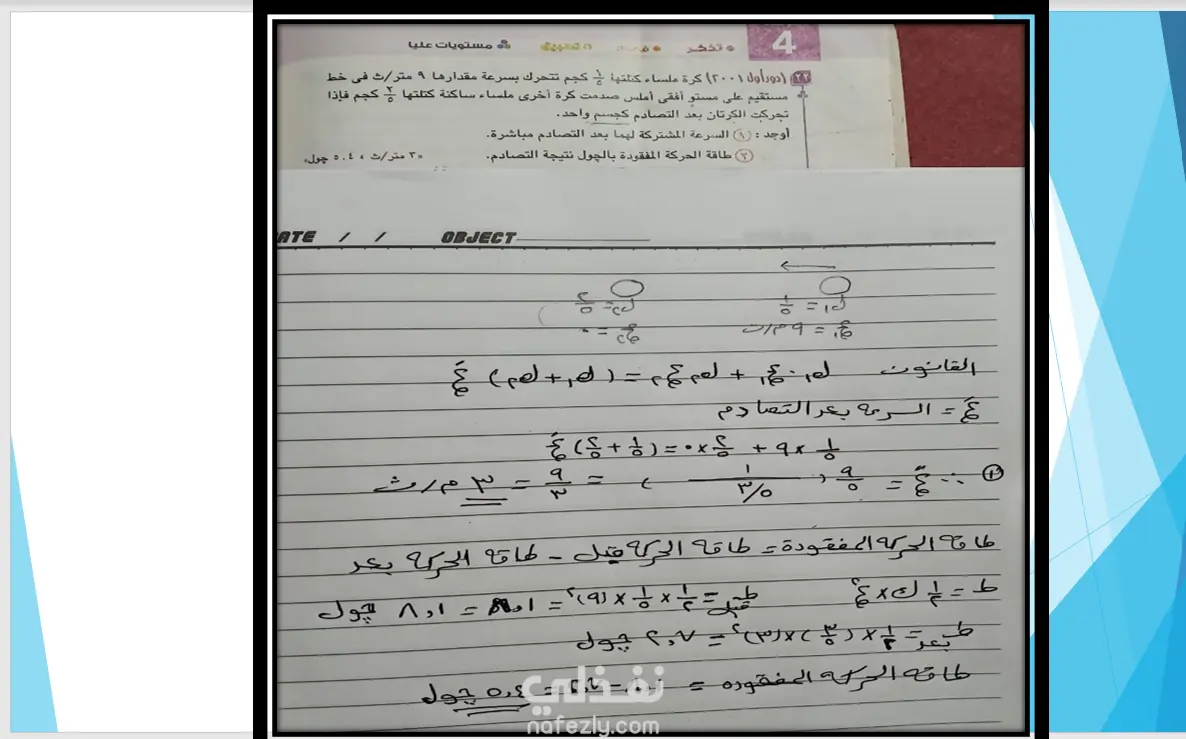 4
• تذكر • فهم • تطبيق مستويات عليا
٢٢ (دور أول ٢٠٠١) كرة ملساء كتلتها ١/٥ كجم تتحرك بسرعة مقدارها ٩ متر/ث فى خط
مستقيم على مستوٍ أفقى أملس صدمت كرة أخرى ملساء ساكنة كتلتها ٢/٥ كجم فإذا
تحركت الكرتان بعد التصادم كجسم واحد.
أوجد : ١ السرعة المشتركة لهما بعد التصادم مباشرة.
٢ طاقة الحركة المفقودة بالچول نتيجة التصادم. «٣ متر/ث ، ٥.٤ چول»
DATE / / OBJECT
ك١ = ١/٥ ك٢ = ٢/٥
ع١ = ٩ م/ث ع٢ = ٠
القانون ك١ . ع١ + ك٢ ع٢ = (ك١ + ك٢) عَ
عَ = السرعة بعد التصادم
١/٥ × ٩ + ٢/٥ × ٠ = (١/٥ + ٢/٥) عَ
١ ∴ عَ = ٩/٥ ( ١ / ٣/٥ ) = ٩/٣ = ٣ م/ث
طاقة الحركة المفقودة = طاقة الحركة قبل - طاقة الحركة بعد
ط = ١/٢ ك × ع٢ ط قبل = ١/٢ × ١/٥ × (٩)٢ = ٨,١ = ٨,١ چول
ط بعد = ١/٢ × (٣/٥) × (٣)٢ = ٢,٧ چول
طاقة الحركة المفقوده = = ٥,٤ چول
نفذلي
nafezly.com